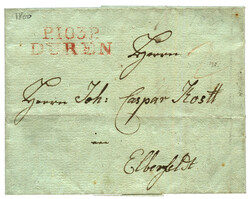 1800
P.103.P.
DÜREN
Herrn
Herrn Joh: Caspar Kostt
Elberfeldt